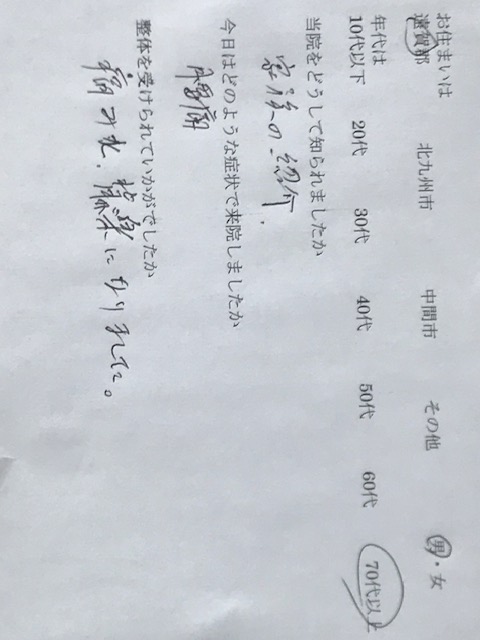 お住まいは
遠賀郡 北九州市 中間市 その他 男・女
年代は
10代以下 20代 30代 40代 50代 60代 70代以上
当院をどうして知られましたか
家族の紹介.
今日はどのような症状で来院しましたか
腰痛
整体を受けられていかがでしたか
痛みが、 になりました。